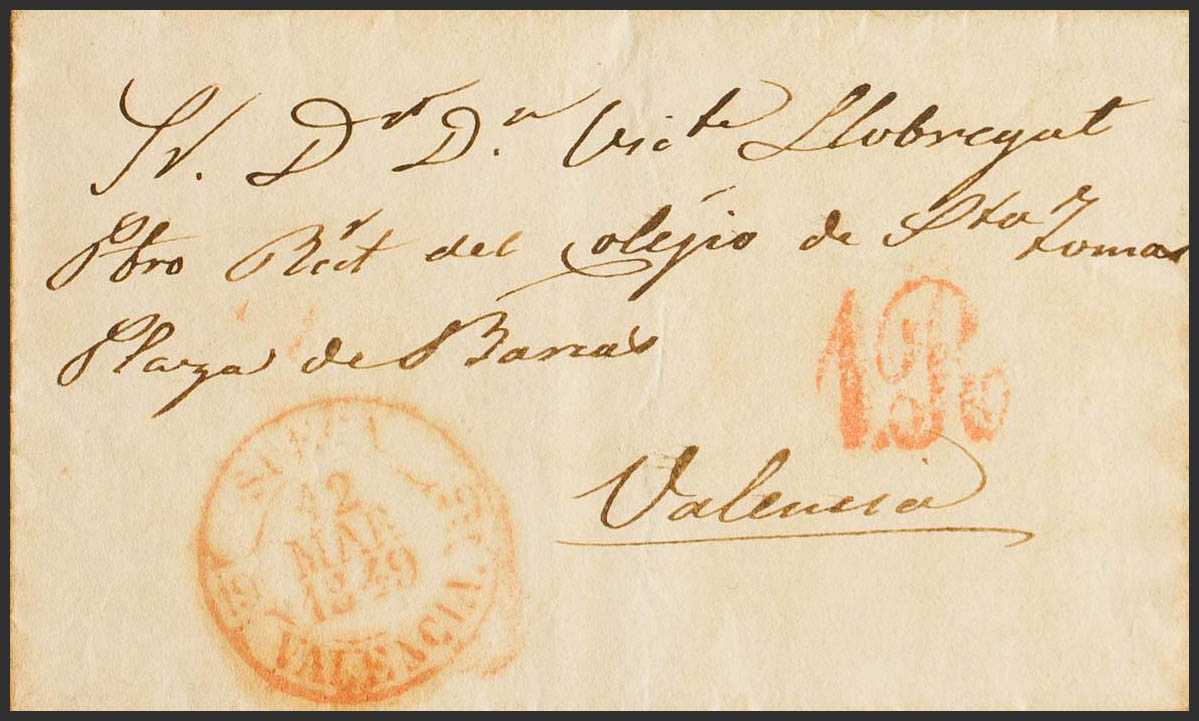 Sr. Dr. Dn. Victe Llobregat
Pbro Rect.r del Colégio de Sto Tomas
Plaza de Barcas
1 Ro
Valencia
SUECA
12
MAR
1849
VALENCIA.